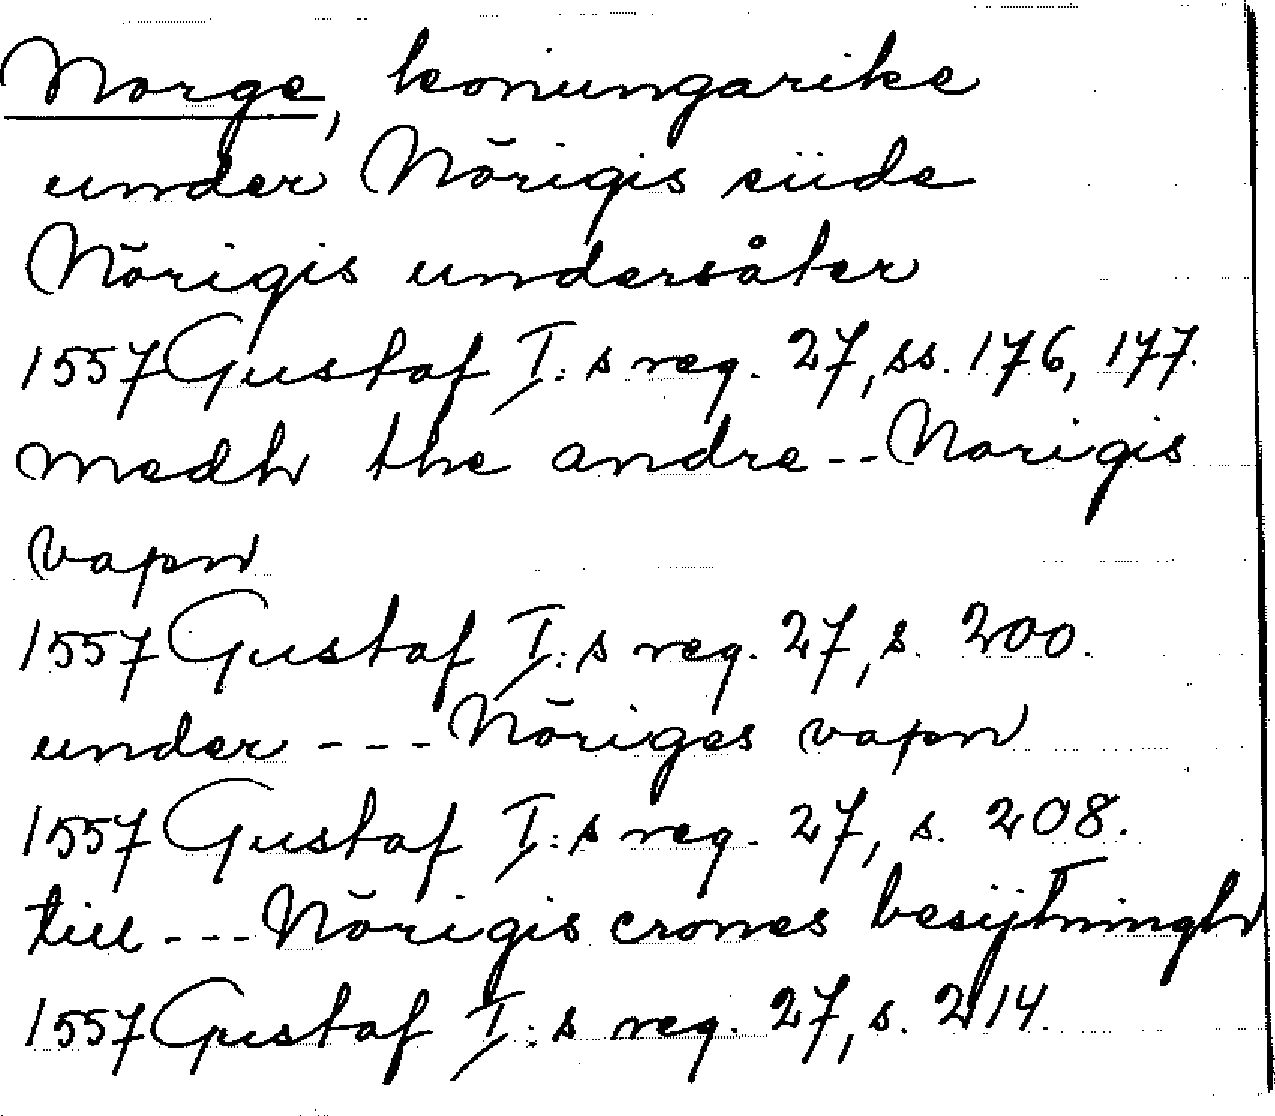 Norge, konungarike
under Nŏrigis siide
Nŏrigis undersåter
1557 Gustaf I:s reg. 27, ss. 176, 177.
medh the andre -- Norigis
vapn
1557 Gustaf I:s reg. 27, s. 200.
under --- Nŏriges vapn
1557 Gustaf I:s reg. 27, s. 208.
till --- Nŏrigis crones besijttningh
1557 Gustaf I:s reg. 27, s. 214.